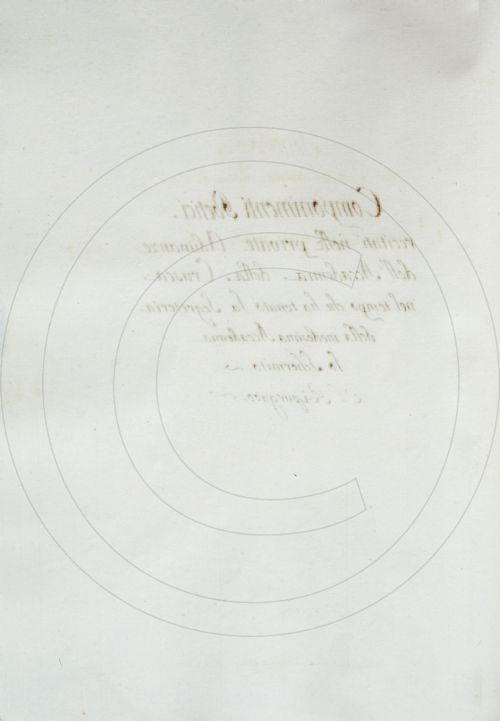 Componimenti Poetici.
recitati nelle private Adunanze
dell'Accademia della Crusca
nel tempo che ha tenuto la Segreteria
della medesima Accademia
lo Schermito